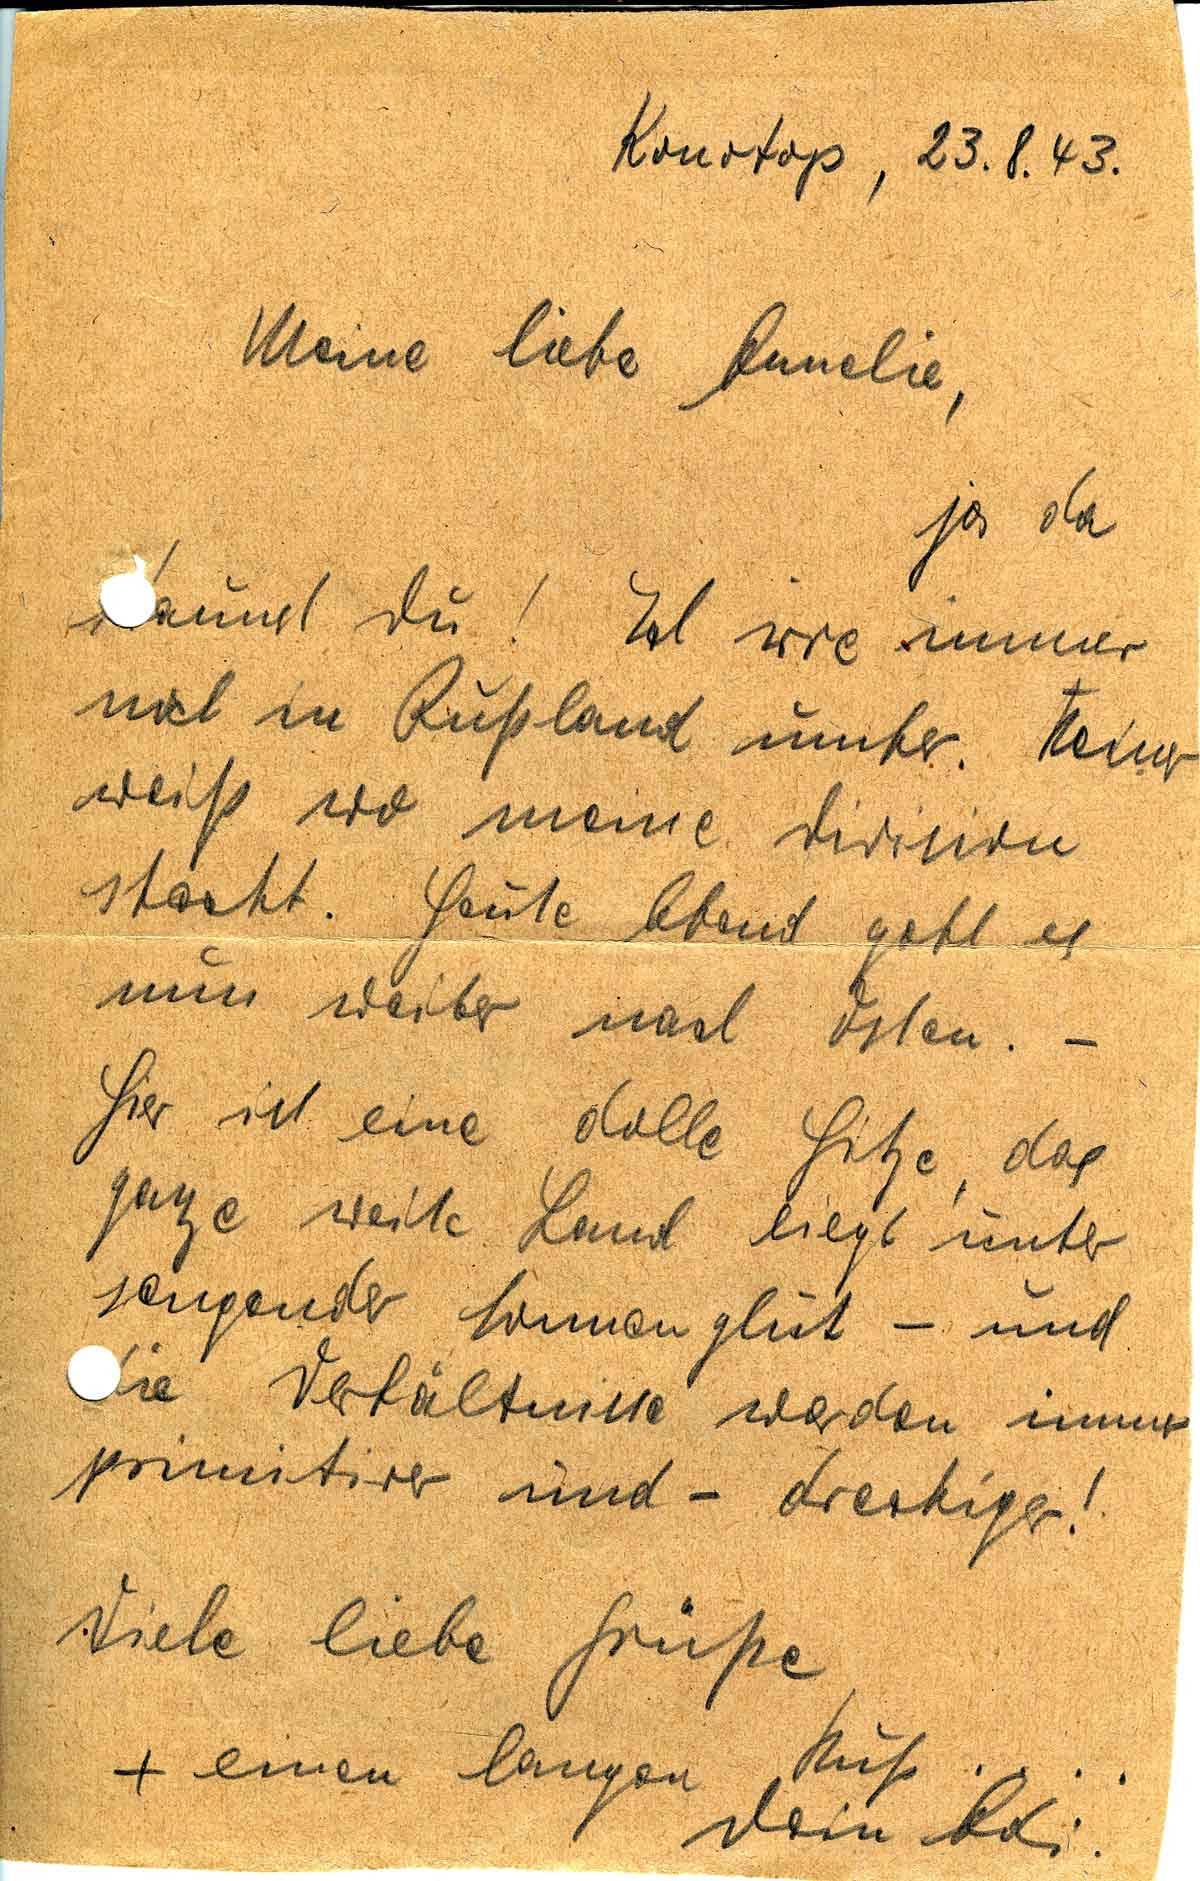 Konotop, 23.8.43.
Meine liebe Annelie,
ja da
staunst Du! Ich irre immer
noch in Rußland umher. Keiner
weiß wo meine Division
steckt. Heute Abend geht es
nun weiter nach Osten. –
Hier ist eine dolle Hitze, das
ganze weite Land liegt unter
sengender Sonnenglut – und
die Verhältnisse werden immer
primitiver und – dreckiger!
Viele liebe Grüße
+ einen langen Kuß . . . .
Dein Adi.